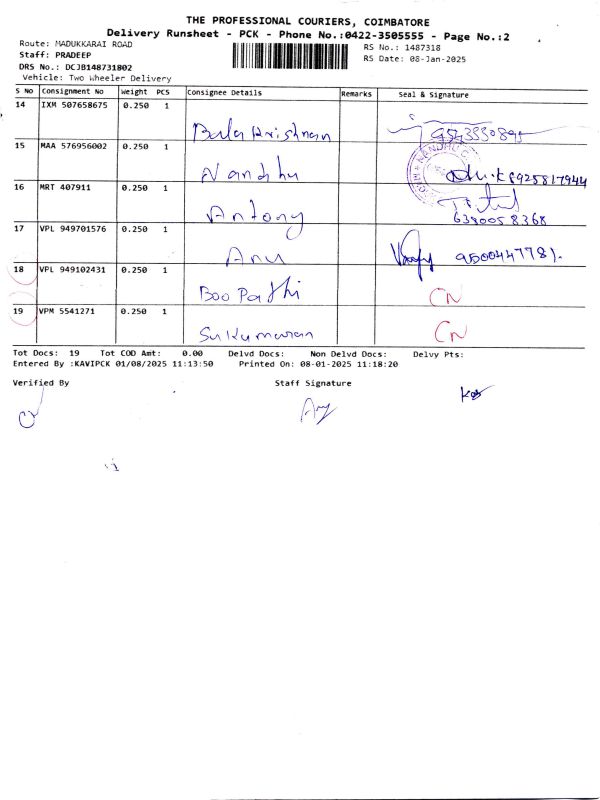 THE PROFESSIONAL COURIERS, COIMBATORE
Delivery Runsheet - PCK - Phone No.:0422-3505555 - Page No.:2
Route: MADUKKARAI ROAD
Staff: PRADEEP
DRS No.: DCJB148731802
Vehicle: Two Wheeler Delivery
RS No.: 1487318
RS Date: 08-Jan-2025
S No Consignment No Weight PCS Consignee Details Remarks Seal & Signature
14 IXM 507658675 0.250 1
Bala Krishnan
15 MAA 576956002 0.250 1
Nandhu 8925817944
16 MRT 407911 0.250 1
Antony 6380058368
17 VPL 949701576 0.250 1
Anu 9500447781.
18 VPL 949102431 0.250 1
Boo Pathi CN
19 VPM 5541271 0.250 1
Sukumaran CN
Tot Docs: 19 Tot COD Amt: 0.00 Delvd Docs: Non Delvd Docs: Delvy Pts:
Entered By :KAVIPCK 01/08/2025 11:13:50 Printed On: 08-01-2025 11:18:20
Verified By Staff Signature